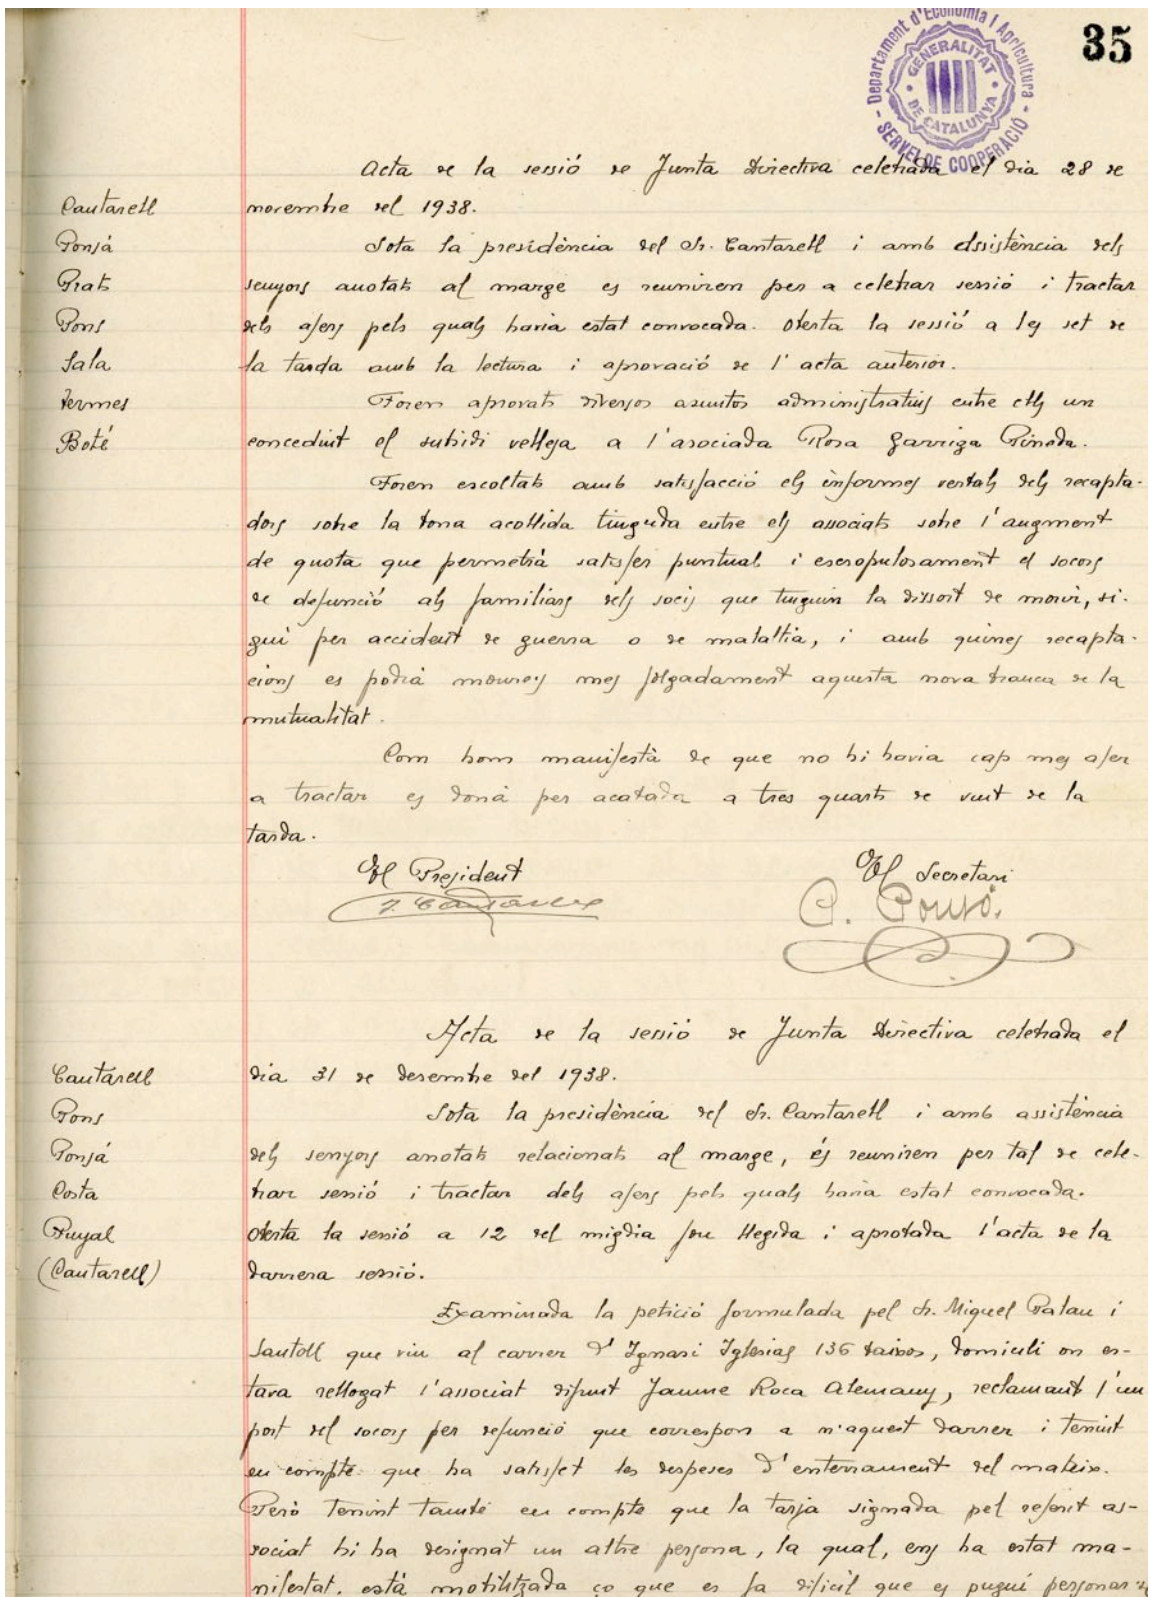 35
Departament d'Economia i Agricultura
GENERALITAT DE CATALUNYA
SERVEI DE COOPERACIÓ
Acta de la sessió de Junta Directiva celebrada el dia 28 de
novembre del 1938.
Cantarell
Ponsá
Prats
Pons
Sala
Termes
Boté
Sota la presidència del Sr. Cantarell i amb assistència dels
senyors anotats al marge es reuniren per a celebrar sessió i tractar
dels afers pels quals havia estat convocada. Oberta la sessió a les set de
la tarda amb la lectura i aprovació de l'acta anterior.
Foren aprovats diversos asuntos administratius entre ells un
concedint el subsidi vellesa a l'asociada Rosa Garriga Pineda.
Foren escoltats amb satisfacció els informes verbals dels recapta-
dors sobre la bona acollida tinguda entre els associats sobre l'augment
de quota que permetrà satisfer puntual i escropulosament el socors
de defunció als familiars dels socis que tinguin la dissort de morir, si-
gui per accident de guerra o de malaltia, i amb quines recapta-
cions es podrà moures mes folgadament aquesta nova branca de la
mutualitat.
Com hom manifestà de que no hi havia cap mes afer
a tractar es donà per acabada a tres quarts de vuit de la
tarda.
El President
El Secretari
J. Cantarell
C. Ponsá.
Acta de la sessió de Junta Directiva celebrada el
dia 31 de desembre del 1938.
Cantarell
Pons
Ponsá
Costa
Puyal
(Cantarell)
Sota la presidència del Sr. Cantarell i amb assistència
dels senyors anotats relacionats al marge, és reuniren per tal de cele-
brar sessió i tractar dels afers pels quals havia estat convocada.
Oberta la sessió a 12 del migdia fou llegida i aprobada l'acta de la
darrera sessió.
Examinada la petició formulada pel Sr. Miquel Palau i
Santoll que viu al carrer d'Ignasi Iglesias 136 baixos, domicili on es-
tava rellogat l'associat difunt Jaume Roca Alemany, reclamant l'im
port del socors per defunció que correspon a n'aquest darrer i tenint
en compte que ha satisfet les despeses d'enterrament del mateix.
Però tenint també en compte que la tarja signada pel referit as-
sociat hi ha designat un altre persona, la qual, ens ha estat ma-
nifestat, està mobilitzada ço que es fa dificil que es pugui personar